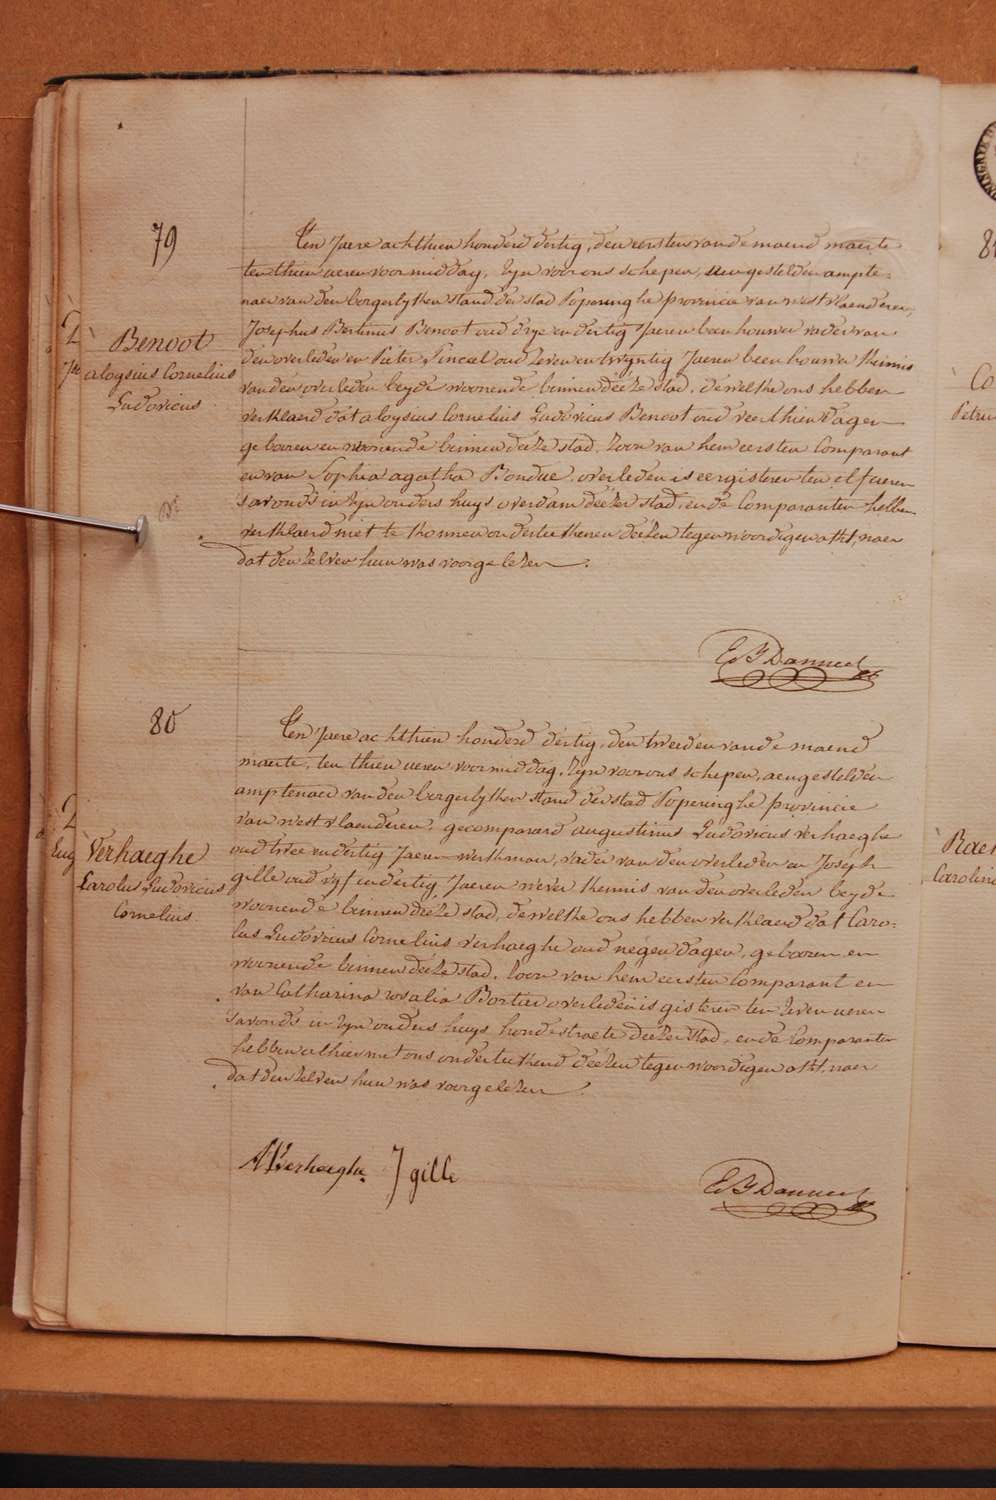 79
Benoot
aloysius Cornelius
Ludovicus
Ten Jaere achthien honderd dertig, den eersten van de maend maerte
ten thien ueren voormiddag, zyn voor ons schepen, aengestelden ampte-
naer van den borgerlyken stand der stad Poperinghe provincie van westvlaenderen,
Josephus Bertinus Benoot oud drye en dertig Jaeren beenhouwer vader van
den overleden en Pieter Pinceel oud zeven en twyntig Jaeren beenhouwer kennis
van den overleden beyde woonende binnen deeze stad, dewelke ons hebben
verklaerd dat aloysius Cornelius Ludovicus Benoot oud veerthien dagen
gebooren en woonende binnen deeze stad, zoon van hem eersten Comparant
en van Sophia agatha Bondue, overleden is eergisteren ten elf ueren
savonds in zyn ouders huys overdam deezer stad, en de Comparanten hebben
verklaerd niet te konnen onderteekenen deezen tegenwoordigen akt, naer
dat den zelven hun was voorgelezen.
80
Verhaeghe
Carolus Ludovicus
Cornelius
Ten Jaere achthien honderd dertig, den tweeden van de maend
maerte, ten thien ueren voormiddag, zyn voor ons schepen, aengestelden
amptenaer van den borgerlyken stand der stad Poperinghe provincie
van westvlaenderen, gecompareerd augustinus Ludovicus Verhaeghe
oud twee en dertig Jaeren werkman, vader van den overleden en Joseph
gille oud vyf en dertig Jaeren wever kennis van den overleden beyde
woonende binnen deeze stad, dewelke ons hebben verklaerd dat Caro-
lus Ludovicus Cornelius verhaeghe oud negen dagen, gebooren en
woonende binnen deeze stad, zoon van hem eersten Comparant en
van Catharina rosalia Bortier overleden is gisteren ten zeven ueren
savonds in zyn ouders huys hondestraete deezer stad, en de Comparanten
hebben alhier met ons onderteekend deezen tegenwoordigen akt, naer
dat den zelven hun was voorgelezen.
J gille